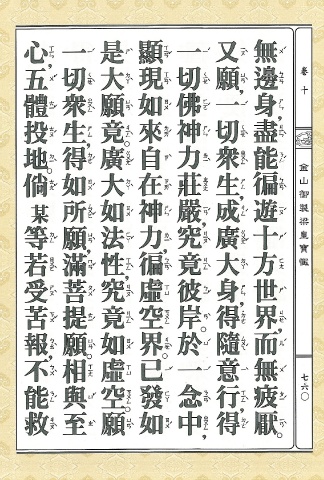 卷十
金山御製梁皇寶懺
七六〇
無邊身，盡能徧遊十方世界，而無疲厭。
又願一切衆生，成廣大身，得隨意行，得
一切佛神力莊嚴，究竟彼岸。於一念中，
顯現如來自在神力，徧虛空界。已發如
是大願，竟廣大如法性，究竟如虛空。願
一切衆生，得如所願，滿菩提願。相與至
心，五體投地。倘某等若受苦報，不能救